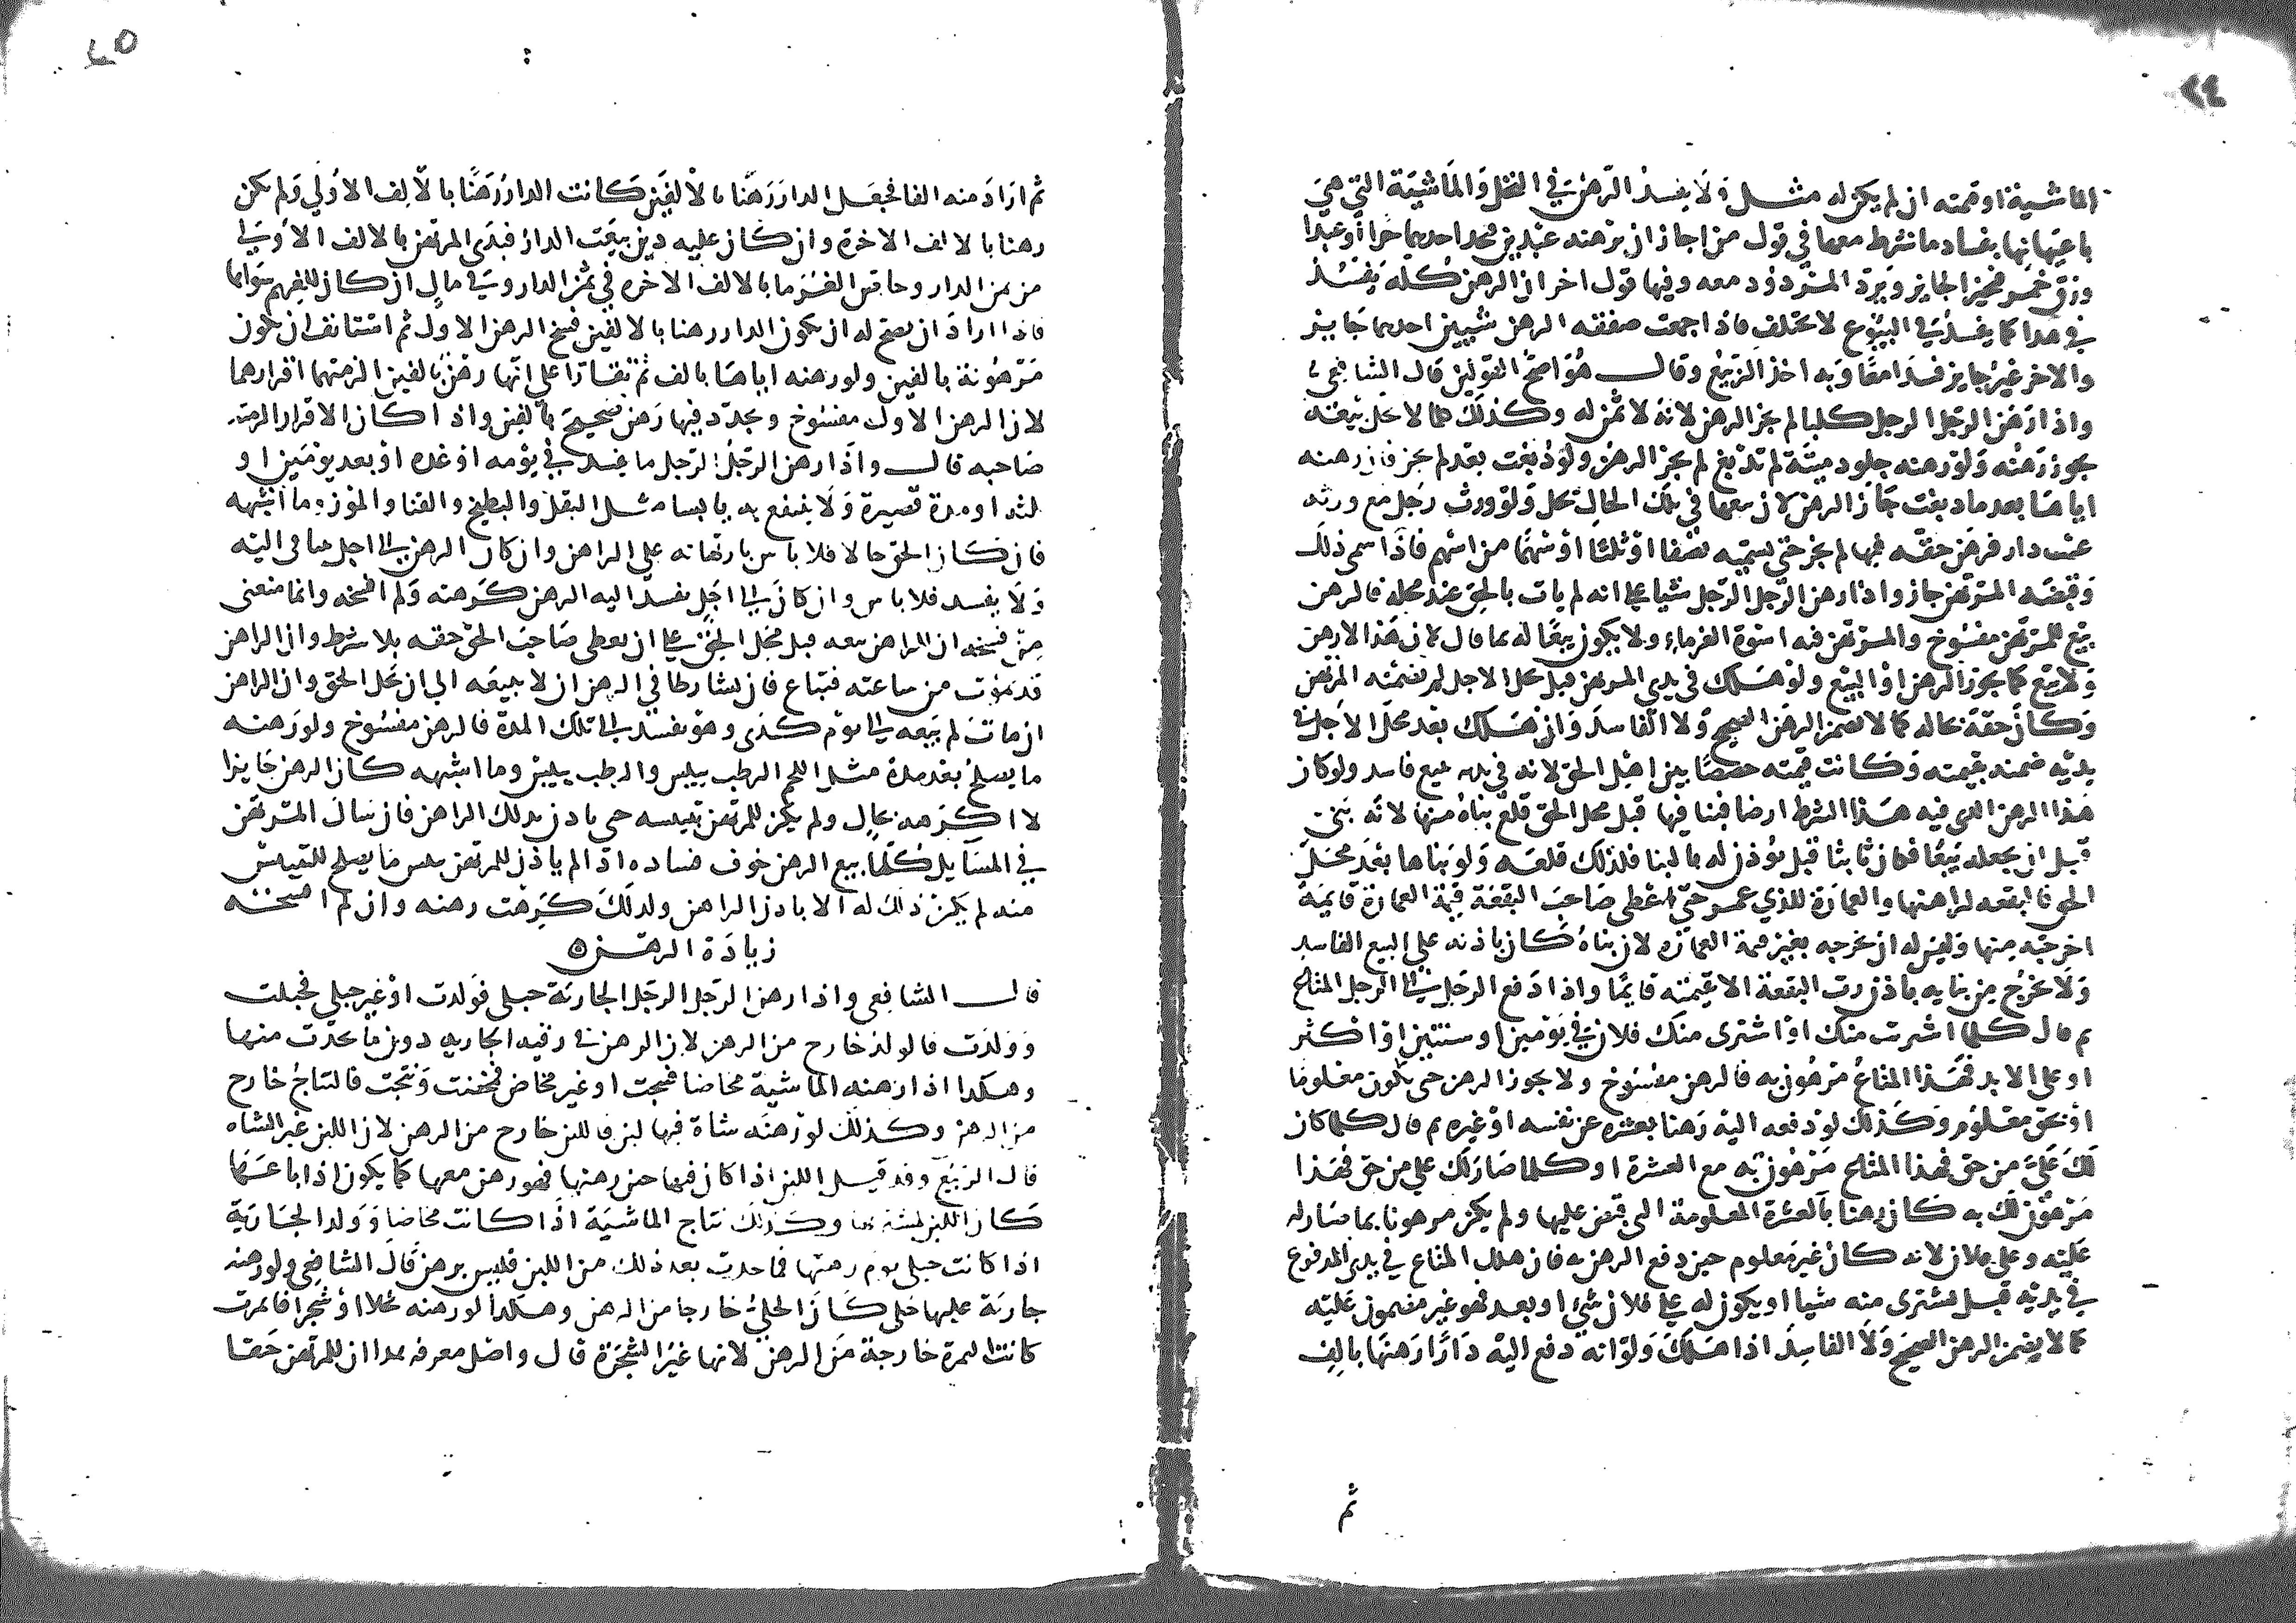 ٢٤
الماشية او قيمته ان لم يكن له مثل ولا يفسد الرهن في النخل والماشية التي هي
باعيانها بفساد ما شرط معها في قول من اجاز ان يرهنه عبدين فيجد احدهما حرا او عبدا
وزق خمر فيجيز الجايز ويرد المردود معه وفيها قول اخر ان الرهن كله يفسد
في هذا كما يفسد في البيوع لا يختلف فاذا جمعت صفقة الرهن شيين احدهما جايز
والاخر غير جايز فسدا معا وبه اخذ الربيع وقال هو اصح القولين قال الشافعي
واذا رهن الرجل الرجل كلبا لم يجز الرهن لانه لا ثمن له وكذلك كلما لا يحل بيعه لا
يجوز رهنه ولو رهنه جلود ميتة لم تدبغ لم يجز الرهن ولو دبغت بعد لم يجز فان رهنه
اياها بعد ما دبغت جاز الرهن لان بيعها في تلك الحال يحل ولو ورث رجل مع ورثه
غيب دار فرهن حقه فيها لم يجز حتى يسميه نصفا او ثلثا او سهما من اسهم فاذا سمى ذلك
وقبضه المرتهن جاز واذا رهن الرجل الرجل شيا على انه لم يات بالحق عند محله فالرهن
بيع للمرتهن مفسوخ والمرتهن فيه اسوة الغرماء ولا يكون بيعا له بما قال لان هذا لا رهن
ولا بيع كما يجوز الرهن او البيع ولو هلك في يدي المرتهن قبل محل الاجل لم يضمنه المرتهن
وكان حقه بحاله كما لا يضمن الرهن الصحيح ولا الفاسد وان هلك بعد محل الاجل في
يديه ضمنه بقيمته وكانت قيمته حصصا بين اهل الحق لانه في يديه ببيع فاسد ولو كان
هذا الرهن الذي فيه هذا الشرط ارضا فبنا فيها قبل محل الحق قلع بناه منها لانه بنى
قبل ان يجعله بيعا فكان بانيا قبل يؤذن له بالبنا فلذلك قلعه ولو بناها بعد محل
الحق فالبقعه لراهنها والعمارة للذي عمر حتى اعطى صاحب البقعة قيمة العمارة قايمة
اخرجه منها وليس له ان يخرجه بغير قيمة العمارة لان بناه كان باذنه على البيع الفاسد
ولا يخرج من بنايه باذن رب البقعة الا بقيمته قايما واذا دفع الرجل الى الرجل المتاع
ثم قال كلما اشتريت منك او اشترى منك فلان في يومين او سنتين او اكثر
او على الابد فهذا المتاع مرهون به فالرهن مفسوخ ولا يجوز الرهن حتى يكون معلوما
او بحق معلوم وكذلك لو دفعه اليه رهنا بعشره عن نفسه او غيره ثم قال كلما كان
لك علي من حق فهذا المتاع مرهون به مع العشرة او كلما صار لك علي من حق فهذا
مرهون لك به كان رهنا بالعشرة المعلومة التي قبض عليها ولم يكن مرهونا بما صار له
عليه وعلى فلان لانه كان غير معلوم حين دفع الرهن به فان هلك المتاع في يدي المدفوع
في يديه قبل يشترى منه شيا او يكون له على فلان شيء او بعد فهو غير مضمون عليه
كما لا يضمن الرهن الصحيح ولا الفاسد اذا هلك ولو انه دفع اليه دارا رهنها بالف
ثم
٢٥
ثم ازاد منه الفا فجعل الدار رهنا بالفين كانت الدار رهنا بالالف الاولى ولم يكن
رهنا بالالف الاخرة وان كان عليه دين بيعت الدار فبدى المرتهن بالالف الاولى
من ثمن الدار وحاص الغرما بالالف الاخره في ثمن الدار وفي مال ان كان للغريم سواها
فاذا اراد ان يصح له ان يكون الدار رهنا بالالفين فسخ الرهن الاول ثم استانف ان يكون
مرهونة بالفين ولو رهنه اياها بالف ثم تقارا على انها رهن بالفين الزمتهما اقرارهما
لان الرهن الاول مفسوخ وجدد فيها رهن صحيح بالفين واذا كان الاقرار الزمته
صاحبه قال واذا رهن الرجل الرجل ما يفسد في يومه او غده او بعد يومين او
ثلثه او مدة قصيرة ولا ينتفع به يابسا مثل البقل والبطيخ والقثا والموز وما اشبهه
فان كان الحق حالا فلا باس بارتهانه على الراهن وان كان الرهن الى اجل يتباقى اليه
ولا يفسد فلا باس وان كان الى اجل يفسد اليه الرهن كرهته ولم افسخه وانما منعني
من فسخه ان للراهن بيعه قبل محل الحق على ان يعطى صاحب الحق حقه بلا شرط وان الراهن
قد يموت من ساعته فيباع فان تشارطا في الرهن ان لا يبيعه الى ان يحل الحق وان الراهن
ان مات لم يبعه الى يوم كذى وهو يفسد الى تلك المدة فالرهن مفسوخ ولو رهنه
ما يصلح بعد مدة مثل اللحم الرطب ييبس والرطب ييبس وما اشبهه كان الرهن جايزا
لا اكرهه بحال ولم يكن للمرتهن تيبيسه حتى ياذن بذلك الراهن فان سال المرتهن
في المسايل كلها بيع الرهن خوف فساده اذا لم ياذن للمرتهن بيبس ما يصلح للتيبيس
منه لم يكن ذلك له الا باذن الراهن ولذلك كرهت رهنه وان لم افسخه
زيادة الرهن ه
قال الشافعي واذا رهن الرجل الرجل الجارية حبلى فولدت او غير حبلى فحبلت
وولدت فالولد خارج من الرهن لان الرهن في رقبه الجاريه دون ما يحدث منها
وهكذا اذا رهنه الماشية مخاضا فنتجت او غير مخاض فمخضت ونتجت فالنتاج خارج
من الرهن وكذلك لو رهنه شاة فيها لبن فاللبن خارج من الرهن لان اللبن غير الشاه
قال الربيع وقد قيل اللبن اذا كان فيها حين رهنها فهو رهن معها كما يكون اذا باعها
كان اللبن لمشتريها وكذلك نتاج الماشية اذا كانت مخاضا وولد الجارية
اذا كانت حبلى يوم رهنها فما حدث بعد ذلك من اللبن فليس برهن قال الشافعي ولو رهنه
جارية عليها حلى كان الحلي خارجا من الرهن وهكذا لو رهنه نخلا او شجرا فاثمرت
كانت الثمرة خارجة من الرهن لانها غير الشجرة قال واصل معرفه هذا ان للمرتهن حقا